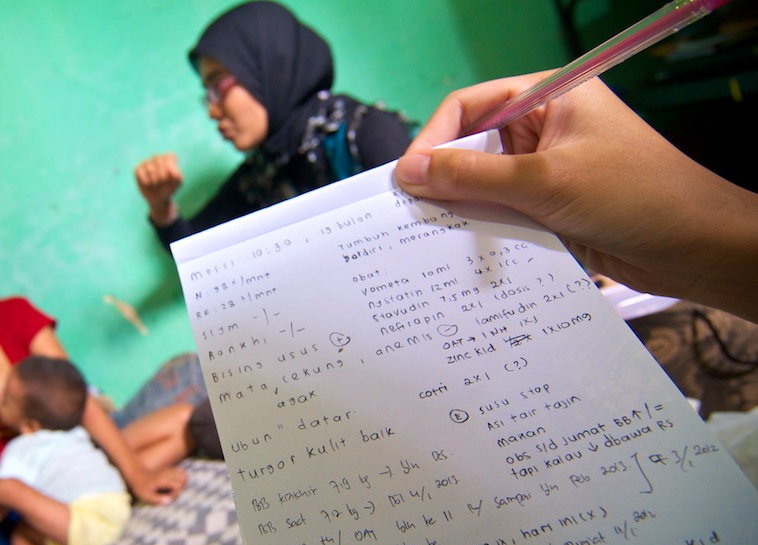 Messi 10.30, 19 bulan
N: 98 x/mnt
RR: 28 x/mnt
Slym -/-
Ronkhi -/-
Bising usus (+)
Mata cekung, anemis (-)
agak
Ubun" datar
turgor kulit baik
BB terakhir 7,9 kg → yln RS.
BB saat 7,2 kg →
4/1 2013
OAT bln ke 11
sampai bln Feb 2013
3/1 2012
Tumbuh kembang
berdiri, merangkak
obat:
Vometa 10ml 3 x 0,3 cc
nystatin 12ml 4x1cc
Stavudin 7,5mg 2x1
nefirapin 2x1 (dosis?)
lamifudin 2x1 (??)
OAT → INH 1x1
Zinc kid 1x10mg
cotri 2x1 (?)
(E) susu stop
Asi tair tajin
makan
obs s/d jumat BB↑/=
tapi kalau ↓ dbawa RS
hari ini (x)
4/1 2012